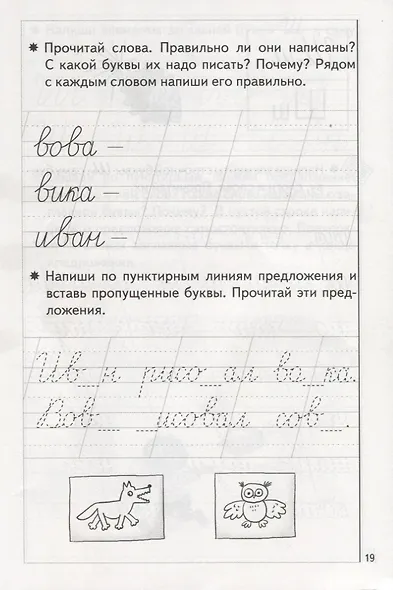 ✷ Прочитай слова. Правильно ли они написаны?
С какой буквы их надо писать? Почему? Рядом
с каждым словом напиши его правильно.
вова –
вика –
иван –
✷ Напиши по пунктирным линиям предложения и
вставь пропущенные буквы. Прочитай эти пред-
ложения.
Ив_н рисо_ал во_ка.
Вов_ _исовал сов_.
19